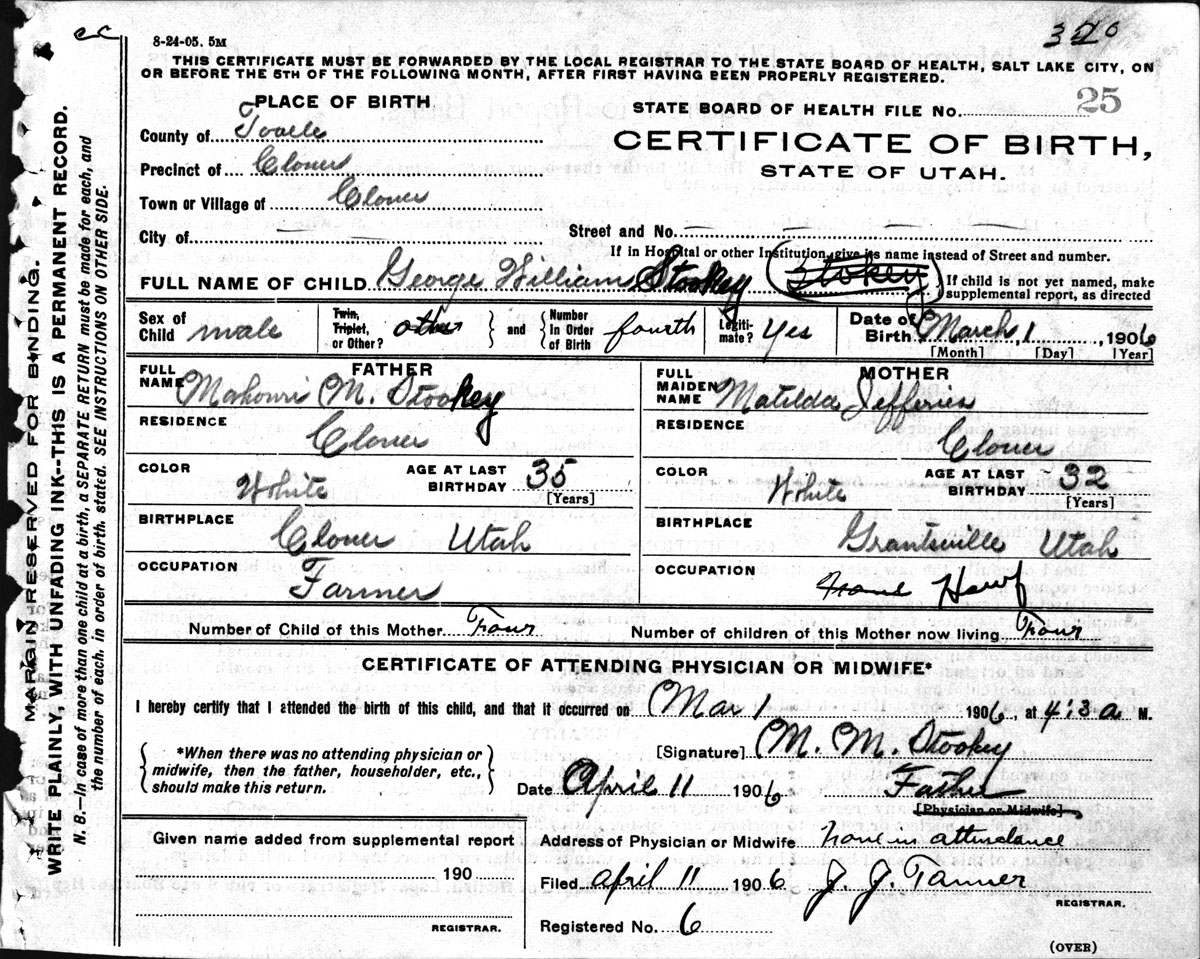 ec
320
8-24-05. 5M
THIS CERTIFICATE MUST BE FORWARDED BY THE LOCAL REGISTRAR TO THE STATE BOARD OF HEALTH, SALT LAKE CITY, ON
OR BEFORE THE 5TH OF THE FOLLOWING MONTH, AFTER FIRST HAVING BEEN PROPERLY REGISTERED.
PLACE OF BIRTH
STATE BOARD OF HEALTH FILE No. 25
County of Tooele
CERTIFICATE OF BIRTH,
Precinct of Clover
STATE OF UTAH.
Town or Village of Clover
City of — — Street and No. — — — — —
If in Hospital or other Institution, give its name instead of Street and number.
FULL NAME OF CHILD George William Stookey (Stokey) If child is not yet named, make
supplemental report, as directed
Sex of Child male Twin, Triplet, or Other? other and Number In Order of Birth fourth Legiti-mate? Yes Date of Birth March, 1, 1906
[Month] [Day] [Year]
FATHER
FULL NAME Mahonri M. Stookey
RESIDENCE
Clover
COLOR White AGE AT LAST BIRTHDAY 35
[Years]
BIRTHPLACE
Clover Utah
OCCUPATION
Farmer
MOTHER
FULL MAIDEN NAME Matilda Jefferies
RESIDENCE
Clover
COLOR White AGE AT LAST BIRTHDAY 32
[Years]
BIRTHPLACE
Grantsville Utah
OCCUPATION
Number of Child of this Mother Four Number of children of this Mother now living Four
CERTIFICATE OF ATTENDING PHYSICIAN OR MIDWIFE*
I hereby certify that I attended the birth of this child, and that it occurred on Mar 1 1906, at 4:3 a M.
*When there was no attending physician or
midwife, then the father, householder, etc.,
should make this return.
[Signature] M. M. Stookey
Date April 11 1906 Father
[Physician or Midwife]
Given name added from supplemental report
190
REGISTRAR.
Address of Physician or Midwife None in attendance
Filed April 11 1906 J. J. Tanner
REGISTRAR.
Registered No. 6
(OVER)
MARGIN RESERVED FOR BINDING.
WRITE PLAINLY, WITH UNFADING INK--THIS IS A PERMANENT RECORD.
N. B.—In case of more than one child at a birth, a SEPARATE RETURN must be made for each, and
the number of each, in order of birth, stated. SEE INSTRUCTIONS ON OTHER SIDE.